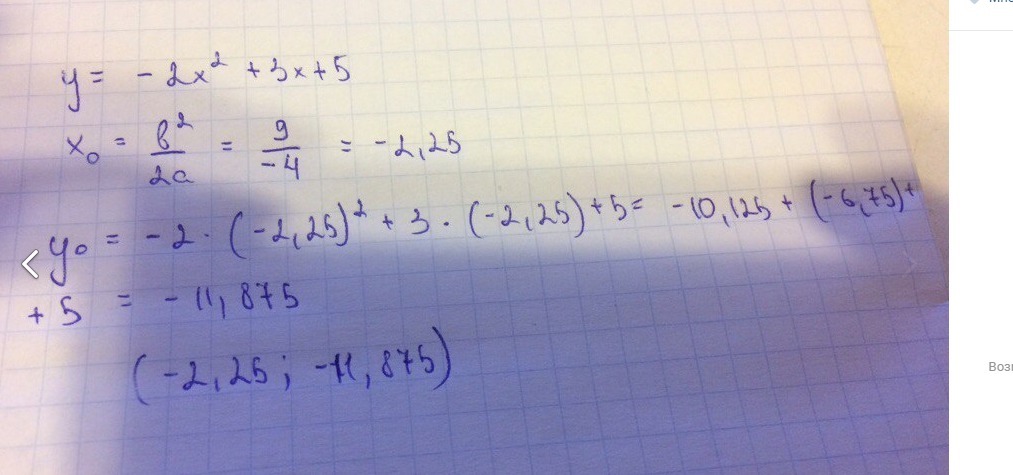 y = -2x² + 3x + 5
x₀ = b²/2a = 9/-4 = -2,25
y₀ = -2 · (-2,25)² + 3 · (-2,25) + 5 = -10,125 + (-6,75) +
+ 5 = -11,875
(-2,25 ; -11,875)